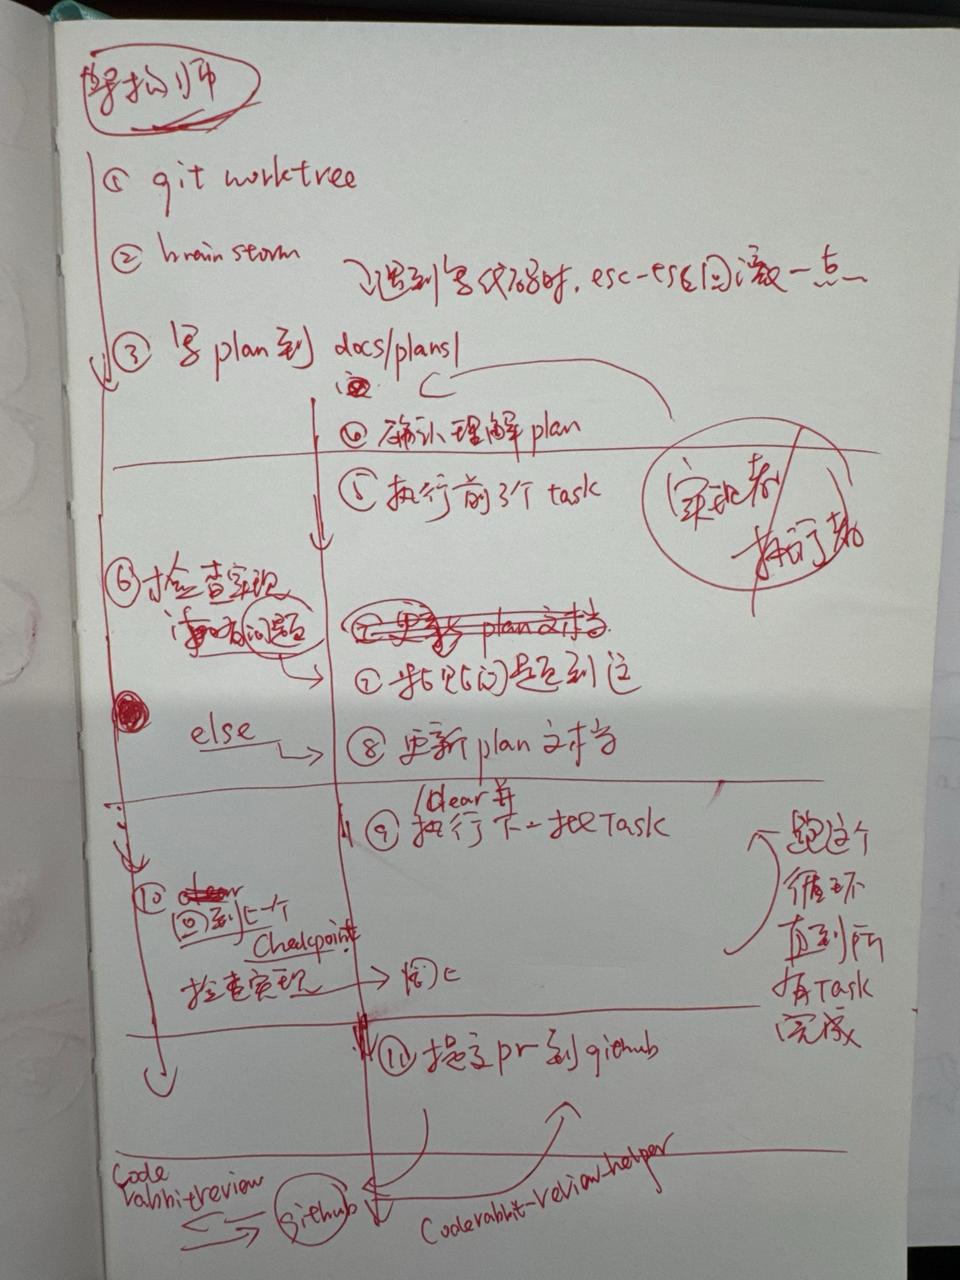 架构师
① git worktree
② brainstorm
遇到写代码时, esc-esc回滚一点
③ 写plan到 docs/plans/
④ 确认理解plan
⑤ 执行前3个 task
实现者/
执行者
⑥ 检查实现
如有问题
⑦ 更新 plan文档
⑦ 粘贴问题到这
else
⑧ 更新plan文档
/clear 并
⑨ 执行下一批Task
跑这个
循环
直到所
有Task
完成
⑩ clear
回到上一个
checkpoint
检查实现
同上
⑪ 提交pr到github
Code
rabbit review
github
Coderabbit-review-helper